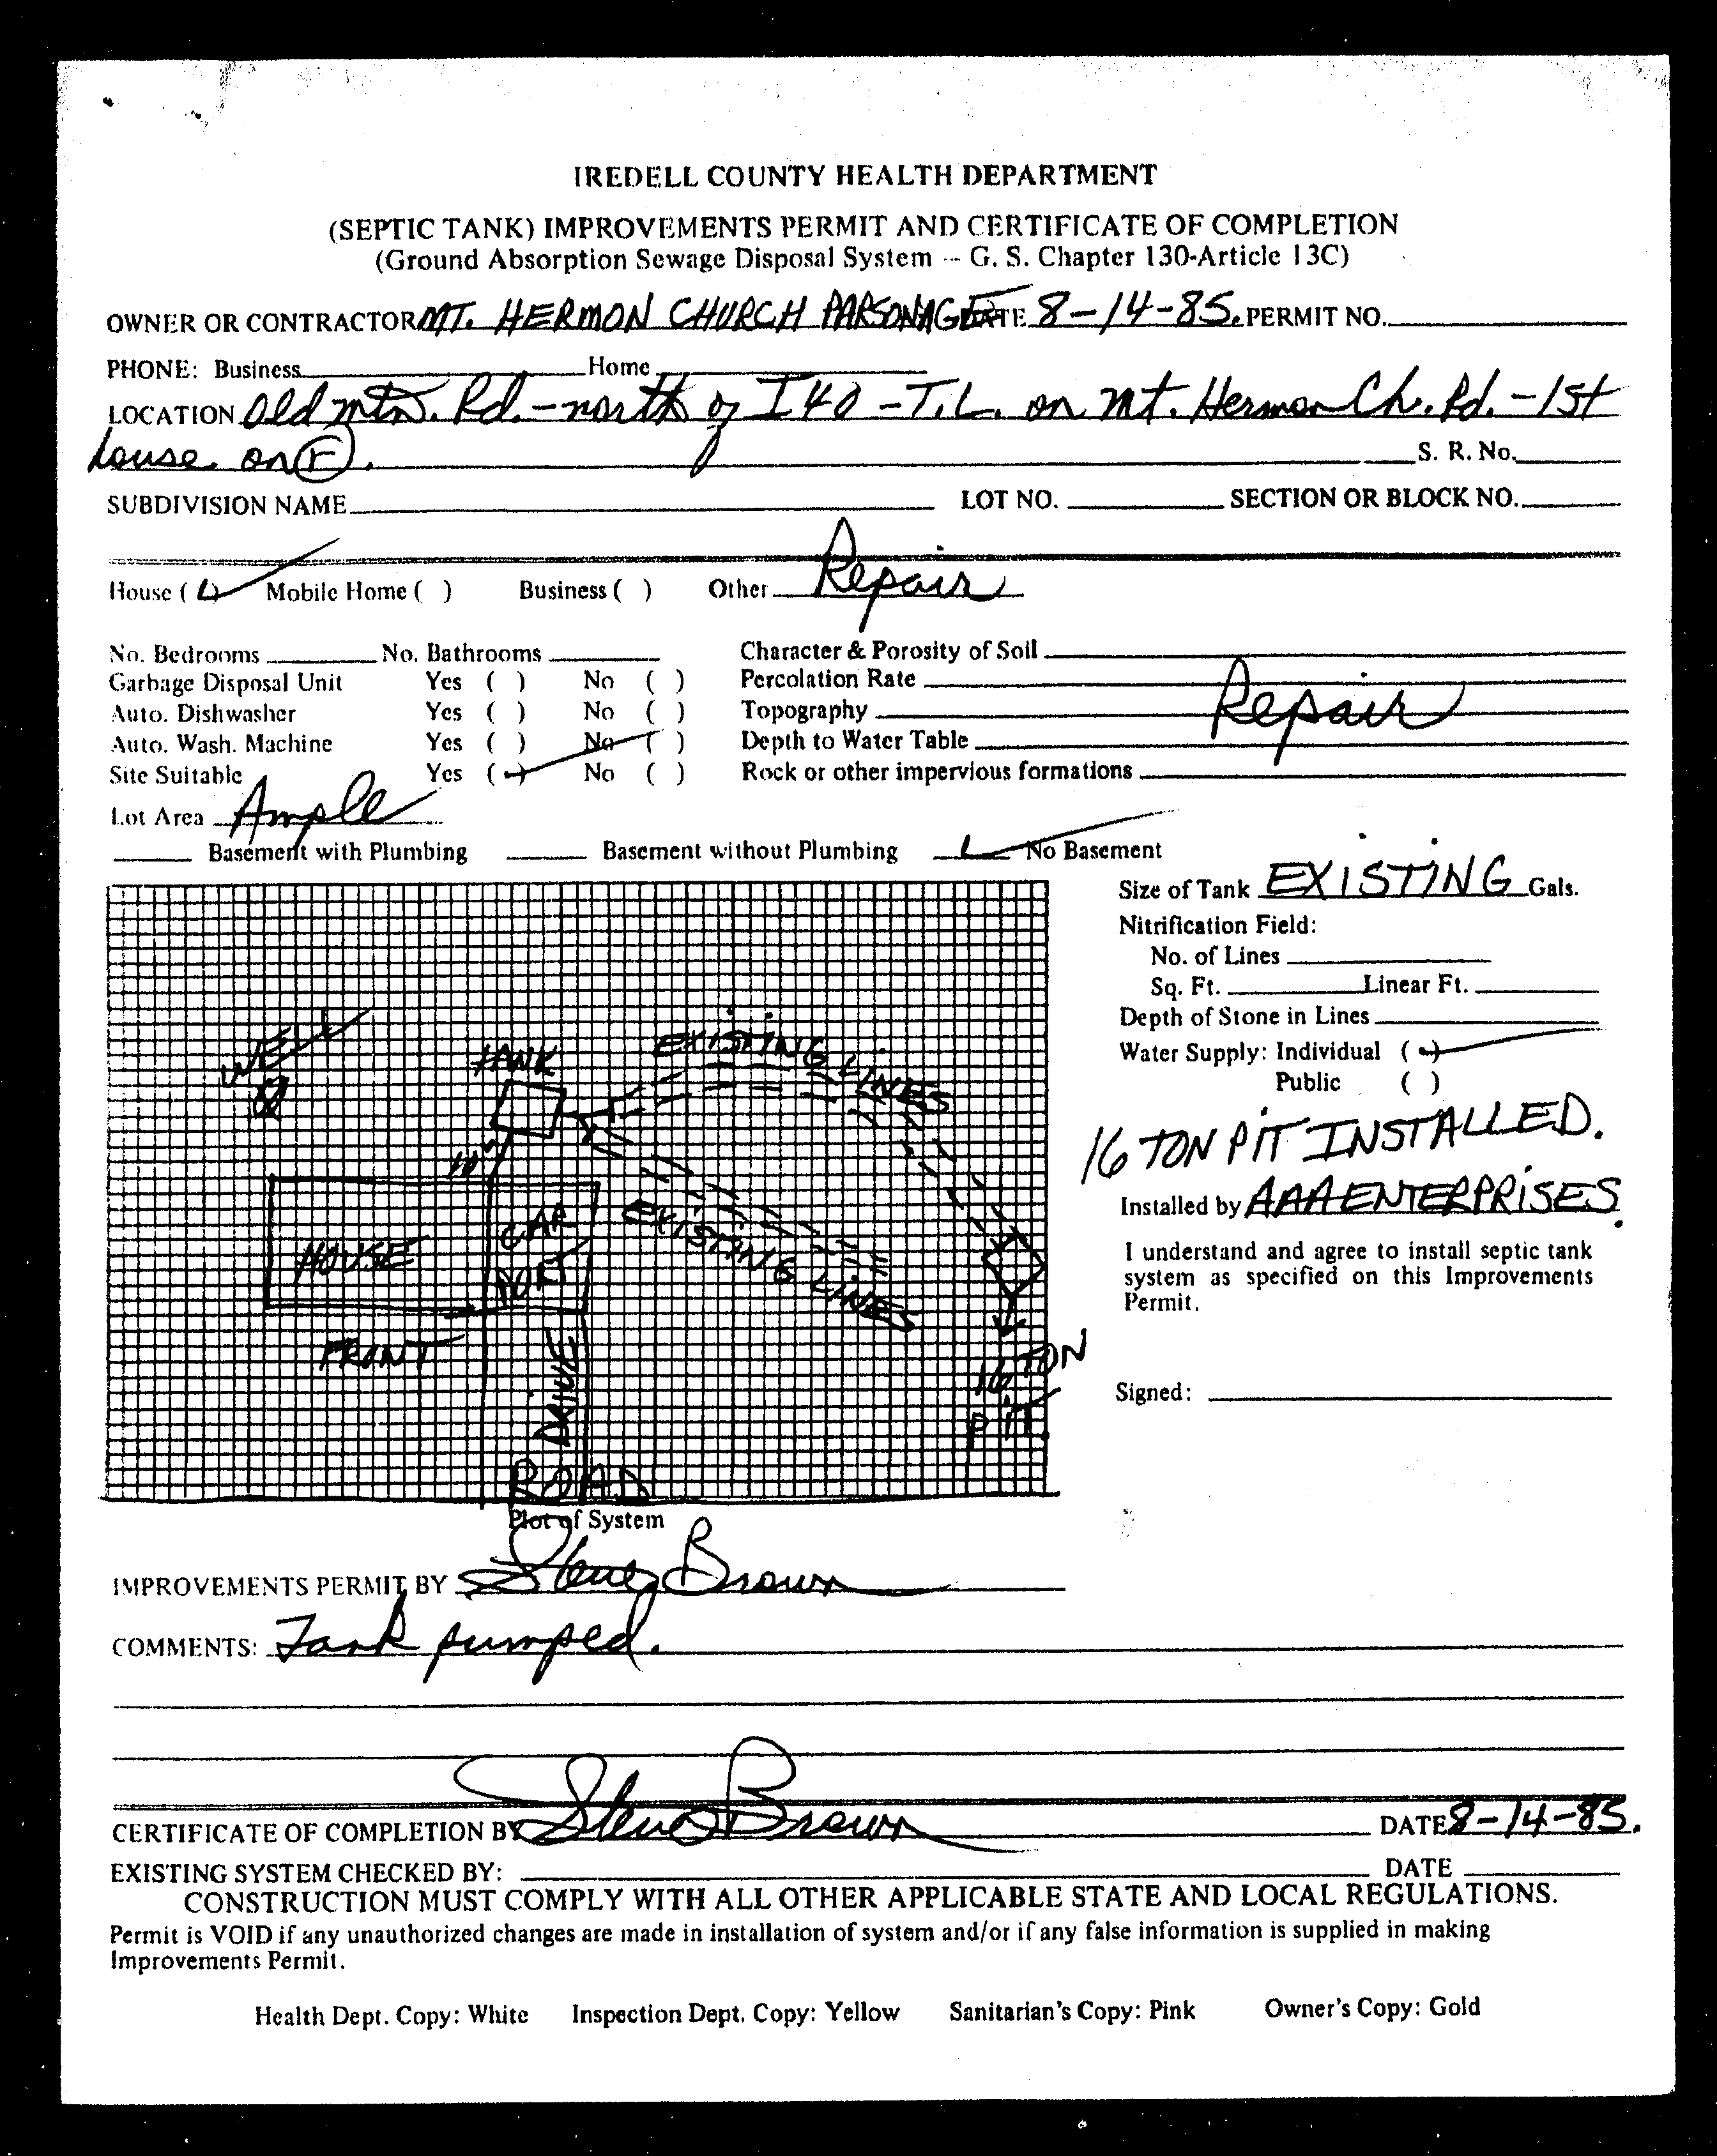 IREDELL COUNTY HEALTH DEPARTMENT
(SEPTIC TANK) IMPROVEMENTS PERMIT AND CERTIFICATE OF COMPLETION
(Ground Absorption Sewage Disposal System -- G. S. Chapter 130-Article 13C)
OWNER OR CONTRACTOR MT. HERMON CHURCH PARSONAGE DATE 8-14-85. PERMIT NO.
PHONE: Business Home
LOCATION Old mtn. Rd. - north of I 40 - T.L. on Mt. Hermon Ch. Rd. - 1st
house on .
S. R. No.
SUBDIVISION NAME LOT NO. SECTION OR BLOCK NO.
House ( ) Mobile Home ( ) Business ( ) Other Repair
No. Bedrooms No. Bathrooms Character & Porosity of Soil
Garbage Disposal Unit Yes ( ) No ( ) Percolation Rate
Repair
Auto. Dishwasher Yes ( ) No ( ) Topography
Auto. Wash. Machine Yes ( ) No ( ) Depth to Water Table
Site Suitable Yes ( ) No ( ) Rock or other impervious formations
Lot Area Ample
Basement with Plumbing Basement without Plumbing No Basement
Size of Tank EXISTING Gals.
Nitrification Field:
No. of Lines
Sq. Ft. Linear Ft.
Depth of Stone in Lines
Water Supply: Individual ( )
Public ( )
16 TON PIT INSTALLED.
Installed by AAA ENTERPRISES.
I understand and agree to install septic tank
system as specified on this Improvements
Permit.
Signed:
WELL
TANK
EXISTING LINES
10'
HOUSE
CAR
PORT
EXISTING LINES
FRONT
DRIVE
16 TON
PIT
ROAD
Plot of System
IMPROVEMENTS PERMIT BY Steve Brown
COMMENTS: Tank pumped.
CERTIFICATE OF COMPLETION BY Steve Brown DATE 8-14-85.
EXISTING SYSTEM CHECKED BY: DATE
CONSTRUCTION MUST COMPLY WITH ALL OTHER APPLICABLE STATE AND LOCAL REGULATIONS.
Permit is VOID if any unauthorized changes are made in installation of system and/or if any false information is supplied in making
Improvements Permit.
Health Dept. Copy: White Inspection Dept. Copy: Yellow Sanitarian's Copy: Pink Owner's Copy: Gold